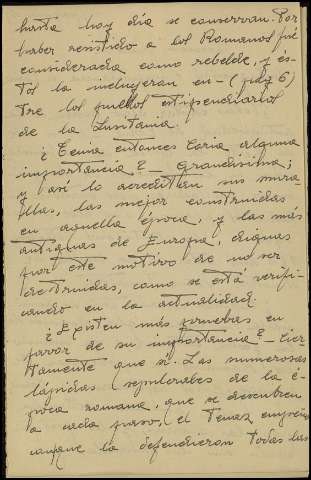 hasta hoy día se conservan. Por
haber resistido a los Romanos fué
considerada como rebelde, y és-
tos la incluyeran en- (pág 6)
tre los pueblos estipendiarios
de la Lusitania.
¿Tenía entonces Coria alguna
importancia? – Grandísima;
y así lo acreditan sus mura-
llas, las mejor construidas
en aquella época, y las más
antiguas de Europa, dignas
por este motivo de no ser
destruidas, como se está verifi-
cando en la actualidad.
¿Existen más pruebas en
favor de su importancia? – Cier-
tamente que sí. Las numerosas
lápidas sepulcrales de la é-
poca romana, que se descubren
a cada paso, el tenaz empeño
conque la defendieron todas las